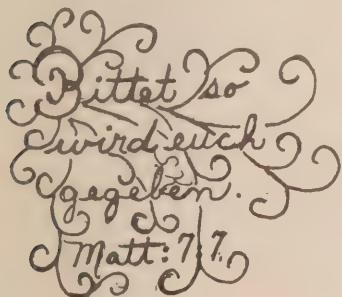 Bittet so
wird euch
gegeben.
Matt: 7:7.